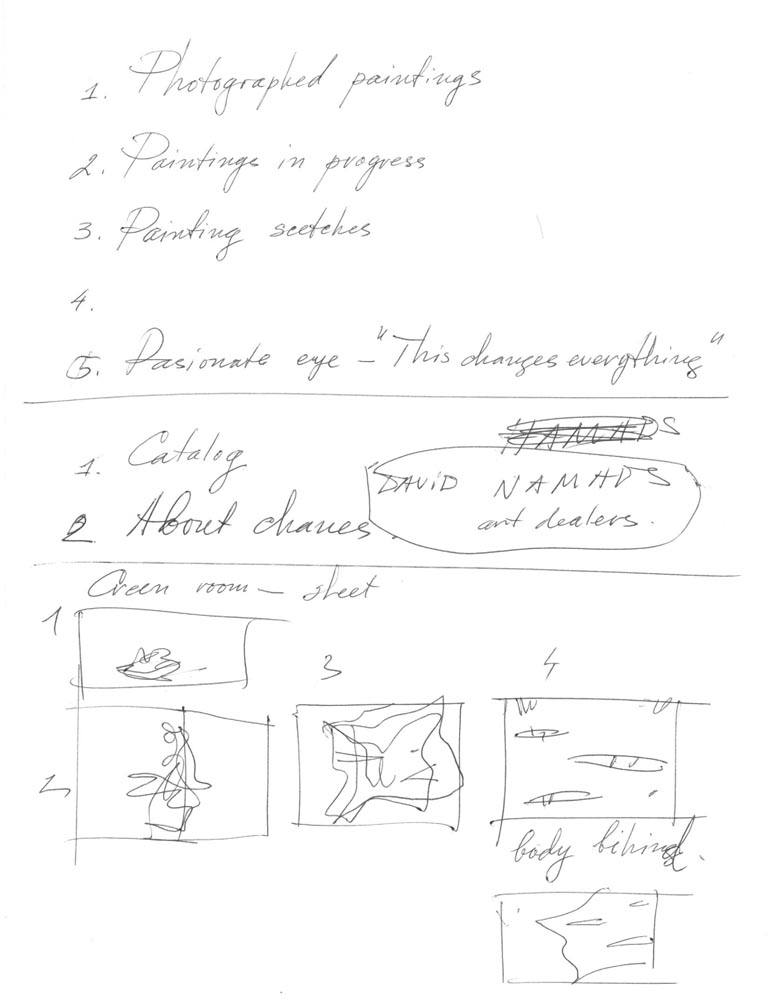 1. Photographed paintings
2. Paintings in progress
3. Painting scetches
4.
5. Pasionate eye – "This changes everything"
1. Catalog
HAMADS
DAVID NAMADS
art dealers.
2 About
Green room – sheet
1
3
4
2
body bihind.